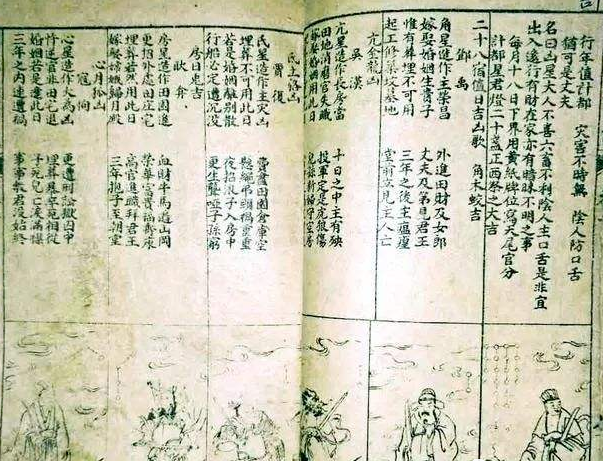 行年值計都　灾害不時無　陰人防口舌
猶可是丈夫
名曰凶星大人不善六畜不利陰人主口舌是非宜
出入遠行有財在家亦有暗昧不明之事
每月十八日下界用黄紙牌位寫天尾宮分
計都星君燈二十盞正西祭之大吉
二十八宿值日吉凶歌　角木蛟吉
鄧禹
角星造作主荣昌　外進田財及女郎
嫁娶婚姻生貴子　丈夫及第見君王
惟有葬埋不可用　三年之後主瘟㾮
起工修築墳墓地　堂前立見主人亡
亢金龍凶
吳漢
亢星造作長房當　十日之中主有殃
田地消磨官失職　投軍定是虎狼傷
嫁娶婚姻用此日　兒孫新婦守空房
氐土貉凶
賈復
氐星造作主灾凶　費盡田園倉庫空
埋葬不可用此日　懸繩吊頸禍重重
若是婚姻離别散　夜招浪子入房中
行船必定遭沉没　更生聾啞子孫窮
房日兔吉
耿弇
房星造作田園進　血財牛馬遍山岡
更招外處田庄宅　榮華富貴福壽康
埋葬若然用此日　高官進職拜君王
嫁娶嫦娥歸月殿　三年抱子至朝堂
心月狐凶
寇恂
心星造作大為凶　更遭刑訟獄囚中
忤逆官非田宅退　埋葬暴卒死相從
婚姻若是逢此日　子死兒亡淚滿胸
三年之内連遭禍　事事教君没始終